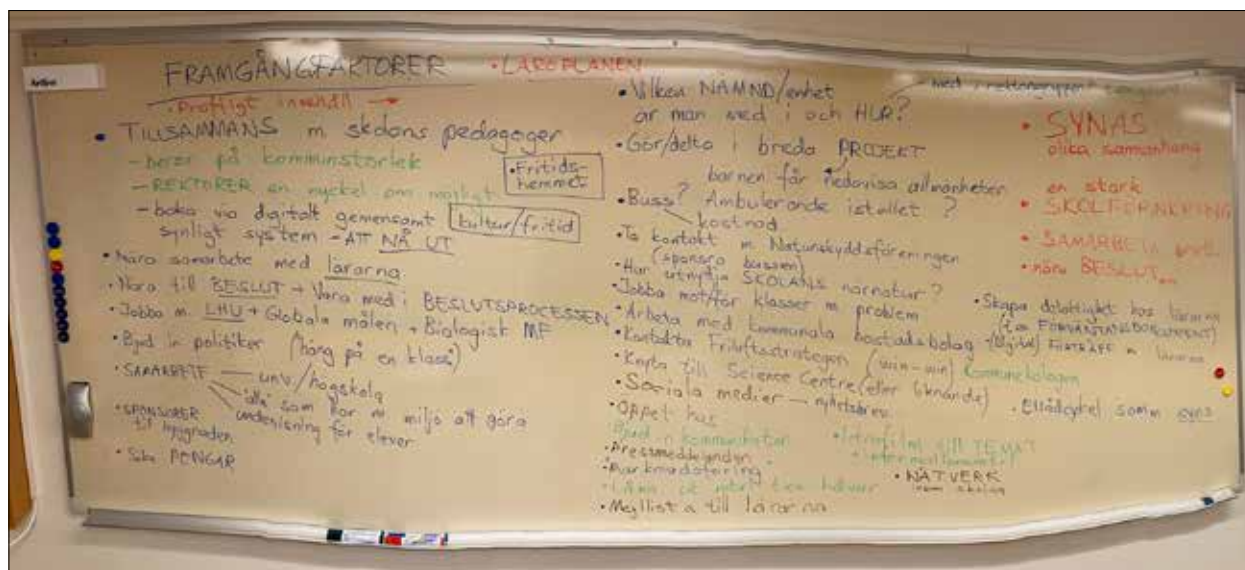 FRAMGÅNGSFAKTORER
• LÄROPLANEN
• Proffsigt innehåll →
• TILLSAMMANS m skolans pedagoger
- beror på kommunstorlek
- REKTORER en nyckel om möjligt
• Fritids-
hemmet
- boka via digitalt gemensamt
synligt system - ATT NÅ UT
kultur/fritid
• Nära samarbete med lärarna
• Nära till BESLUT + Vara med i BESLUTSPROCESSEN
• Jobba m. LHU + Globala målen + Biologisk MF
• Bjud in politiker (häng på en klass)
• SAMARBETE — univ./högskola
"alla" som har m miljö att göra
undervisning för elever
• SPONSORER
till byggnaden
• Söka PENGAR
• Vilken NÄMND/enhet
är man med i och HUR?
med i rektorsgruppen
• Gör/delta i breda PROJEKT
barnen får redovisa allmänheten
• Buss? Ambulerande istället?
kostnad
• Ta kontakt m Naturskyddsföreningen
(sponsra bussen)
• Hur utnyttja SKOLANS närnatur?
• Jobba mot/för klasser m problem
• Arbeta med kommunala bostadsbolag
• Kontakta Friluftsstrategen (win-win) Kommunekologen
• Knyta till Science Centre (eller liknande)
• Sociala medier — nyhetsbrev
• Öppet hus
• Bjud in kommunikatören
• Pressmeddelanden
• Marknadsföring
• Låna ut mtrl t.ex håvar
• Mejllista till lärarna
• Introfilm till TEMAT
• NÄTVERK
inom skolan
• SYNAS
olika samanhang
en stark
• SKOLFÖRANKRING
• SAMARBETA
• nära BESLUT
• Skapa delaktighet hos lärarna
(t.ex FÖRVÄNTANSDOKUMENT)
- (Digital) FÖRTRÄFF m lärarna
• Ellådcykel somm syns